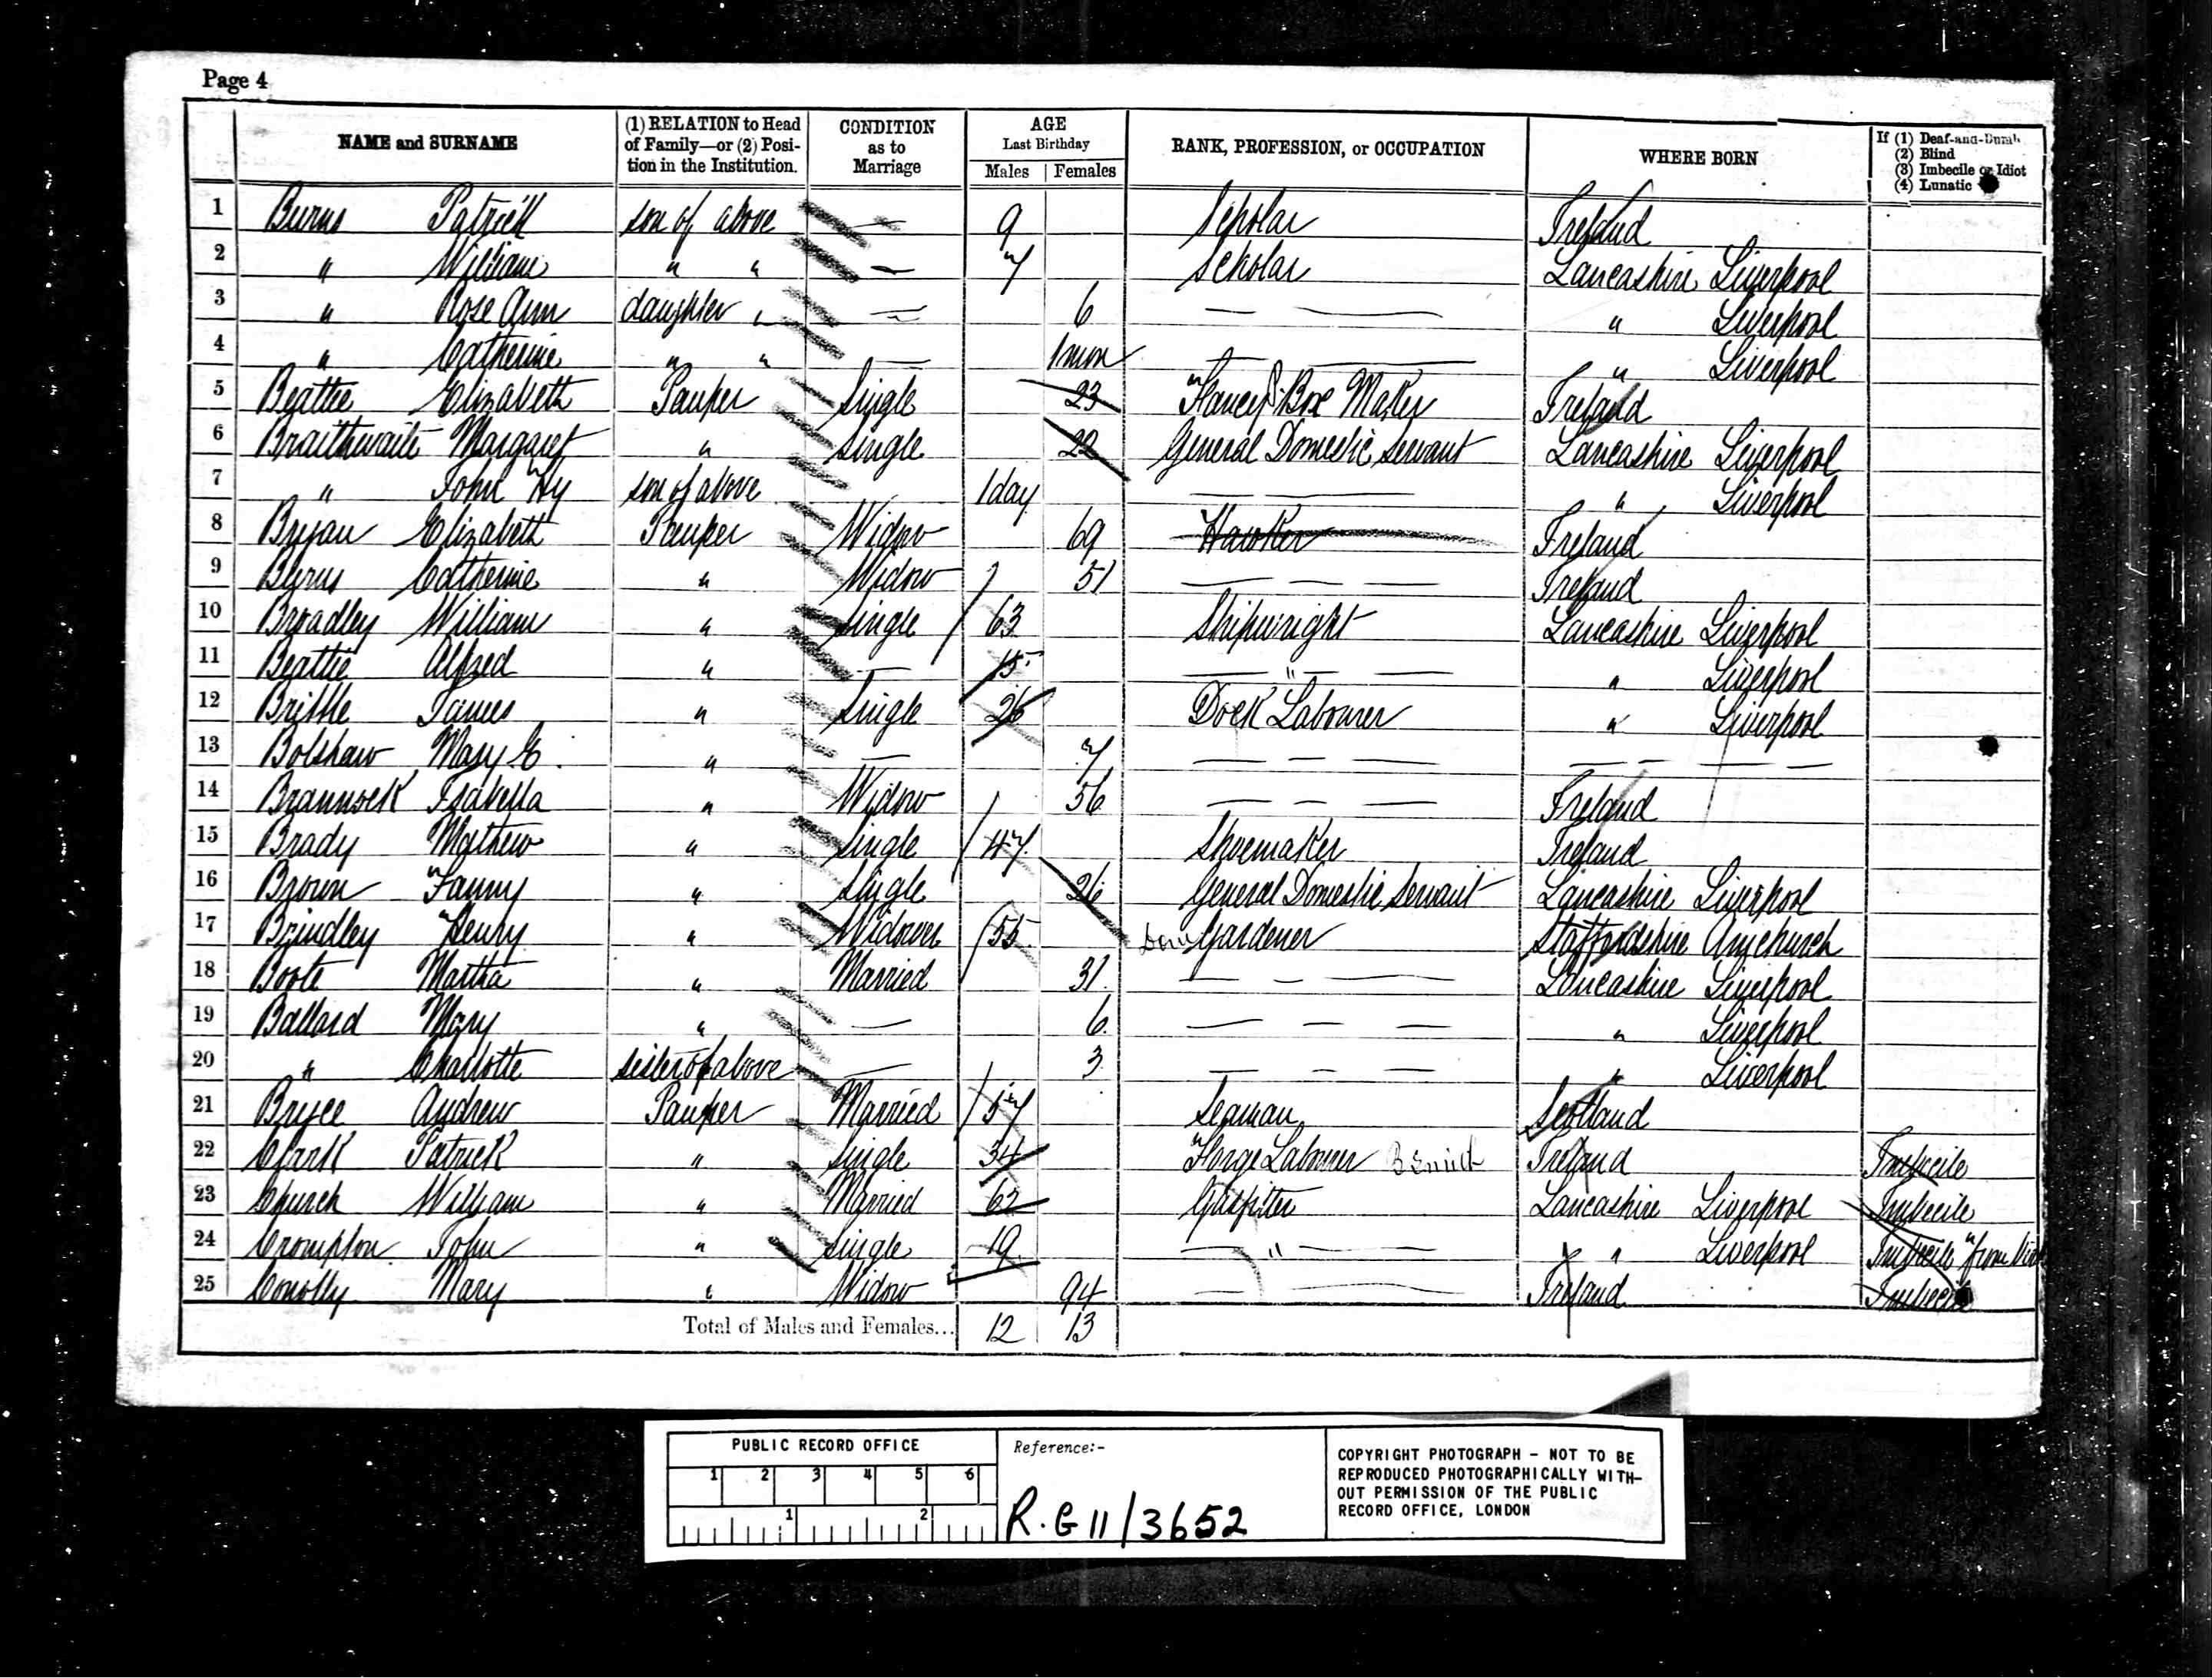 Page 4
NAME and SURNAME (1) RELATION to Head of Family—or (2) Position in the Institution. CONDITION as to Marriage AGE Last Birthday Males Females RANK, PROFESSION, or OCCUPATION WHERE BORN If (1) Deaf-and-Dumb (2) Blind (3) Imbecile or Idiot (4) Lunatic
1 Burns Patrick son of above — 9 Scholar Ireland
2 " William " " — 7 Scholar Lancashire Liverpool
3 " Rose Ann daughter " — 6 — — " Liverpool
4 " Catherine " " — 1 mon — — " Liverpool
5 Beattie Elizabeth Pauper Single 23 Fancy Box Maker Ireland
6 Braithwaite Margaret " Single 22 General Domestic Servant Lancashire Liverpool
7 " John Hy son of above 1 day — — " Liverpool
8 Bryan Elizabeth Pauper Widow 69 Hawker Ireland
9 Byrns Catherine " Widow 51 — — — Ireland
10 Broadley William " Single 63 Shipwright Lancashire Liverpool
11 Beattie Alfred " — 15 — " — — " Liverpool
12 Brittle James " Single 26 Dock Labourer " Liverpool
13 Bolshaw Mary E. " — 7 — — — — — — —
14 Brannock Isabella " Widow 56 — — — Ireland
15 Brady Mathew " Single 47 Shoemaker Ireland
16 Brown Fanny " Single 26 General Domestic Servant Lancashire Liverpool
17 Brindley Henry " Widower 55 Gardener Staffordshire
18 Boote Martha " Married 31 — — — Lancashire Liverpool
19 Ballard Mary " — 6 — — — " Liverpool
20 " Charlotte sister of above — 3 — — — " Liverpool
21 Bryce Andrew Pauper Married 57 Seaman Scotland
22 Clark Patrick " Single 34 Forge Labourer Ireland Imbecile
23 Church William " Married 62 Gasfitter Lancashire Liverpool Imbecile
24 Crompton John " Single 19 — " — " Liverpool Imbecile from
25 Conolly Mary " Widow 94 — — — Ireland Imbecile
Total of Males and Females... 12 13
PUBLIC RECORD OFFICE
1 2 3 4 5 6
1 2
Reference:-
R.G 11/3652
COPYRIGHT PHOTOGRAPH - NOT TO BE
REPRODUCED PHOTOGRAPHICALLY WITH-
OUT PERMISSION OF THE PUBLIC
RECORD OFFICE, LONDON